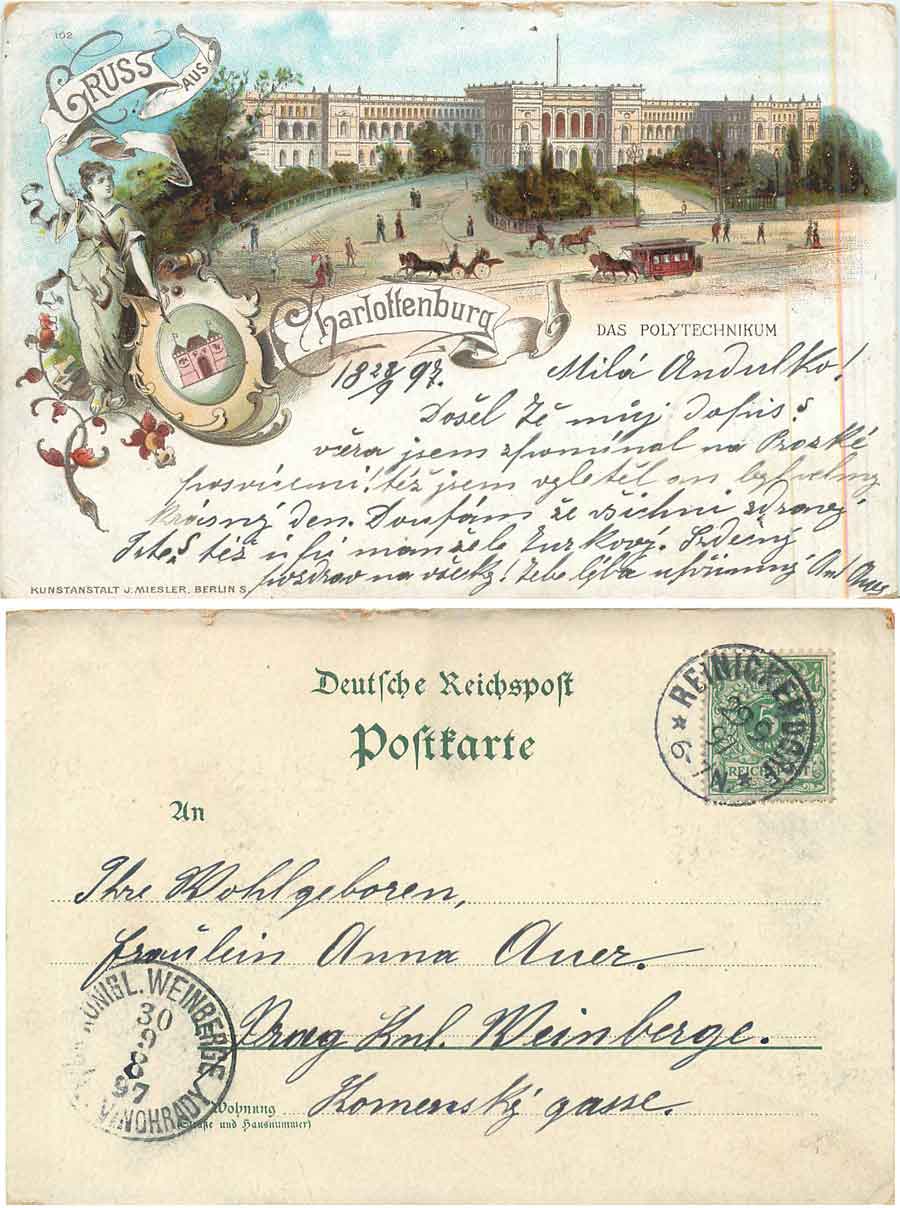 102
GRUSS AUS
Charlottenburg
DAS POLYTECHNIKUM
18 28/9 97. Milá Andulko!
Došel Tě můj dopis?
včera jsem zpomínal na
posvícení! též jsem vyletěl an byl
krásný den. Doufám že všichni zdraví
Jste, též i manžele Zurkovy. Srdečný
pozdrav na všecky! Tebe líbá upřímný
KUNSTANSTALT J. MIESLER, BERLIN S.
Deutsche Reichspost
Postkarte
REINICKENDORF
5
REICHSPOST
An
Ihre Wohlgeboren,
Fräulein Anna Auer.
Prag Knl. Weinberge.
KÖNIGL. WEINBERGE
30
9
8
97
VINOHRADY
Wohnung Komenský gasse.
(Straße und Hausnummer)